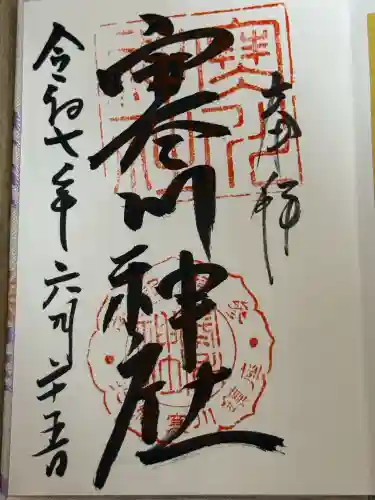 奉拝
寒川神社
令和七年六月二十五日